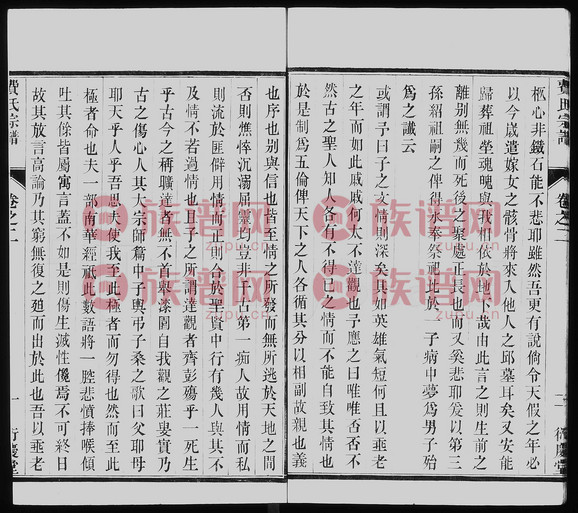 柩心非鐵石能不悲耶雖然吾更有說倘令天假之年必
以今歲遣嫁女之骸骨將來入他人之邱墓耳矣又安能
歸葬祖塋魂魄與我相依於地下哉由此言之則生前之
離別無幾而死後之聚處正長也而又奚悲耶爰以第三
孫紹祖嗣之俾得永奉祭祀此於予病中夢為男子殆
為之讖云
或謂予曰子之文情則深矣其如英雄氣短何且以垂老
之年而如此戚戚何太不達觀也予應之曰唯唯否否不
然古之聖人知人各有不得已之情而不能自致其情也
於是制為五倫俾天下之人各循其分以相副故親也義
也序也別與信也皆至情之所發而無所逃於天地之間
否則憔悴沉溺屈靈均豈非千古第一痴人故用情而私
則流於匪僻用情而正則合於聖賢中行有幾人與其不
及情不若過情也且子之所謂達觀者齊彭殤乎一死生
乎古今之稱曠達者無不首舉漆園自我觀之莊叟實乃
古之傷心人其大宗師篇中子輿弔子桑之歌曰父耶母
耶天乎人乎吾思夫使我至此極者而勿得也然而至此
極者命也夫一部南華經祗此數語將一腔悲憤捧喉傾
吐其餘皆屬寓言蓋不如是則傷生滅性儳焉不可終日
故其放言高論乃其窮無復之廼而出於此也吾以垂老
費氏宗譜
卷之二
一
行慶堂
族谱网
zupu.cn